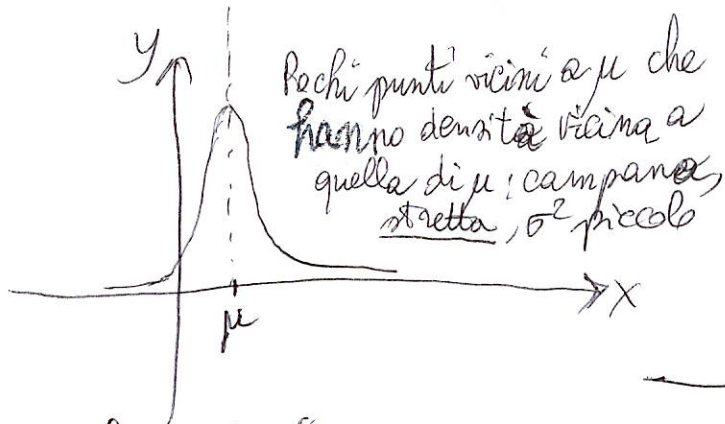 y
Pochi punti vicini a μ che
hanno densità vicina a
quella di μ: campana
stretta, σ² piccolo
X
μ